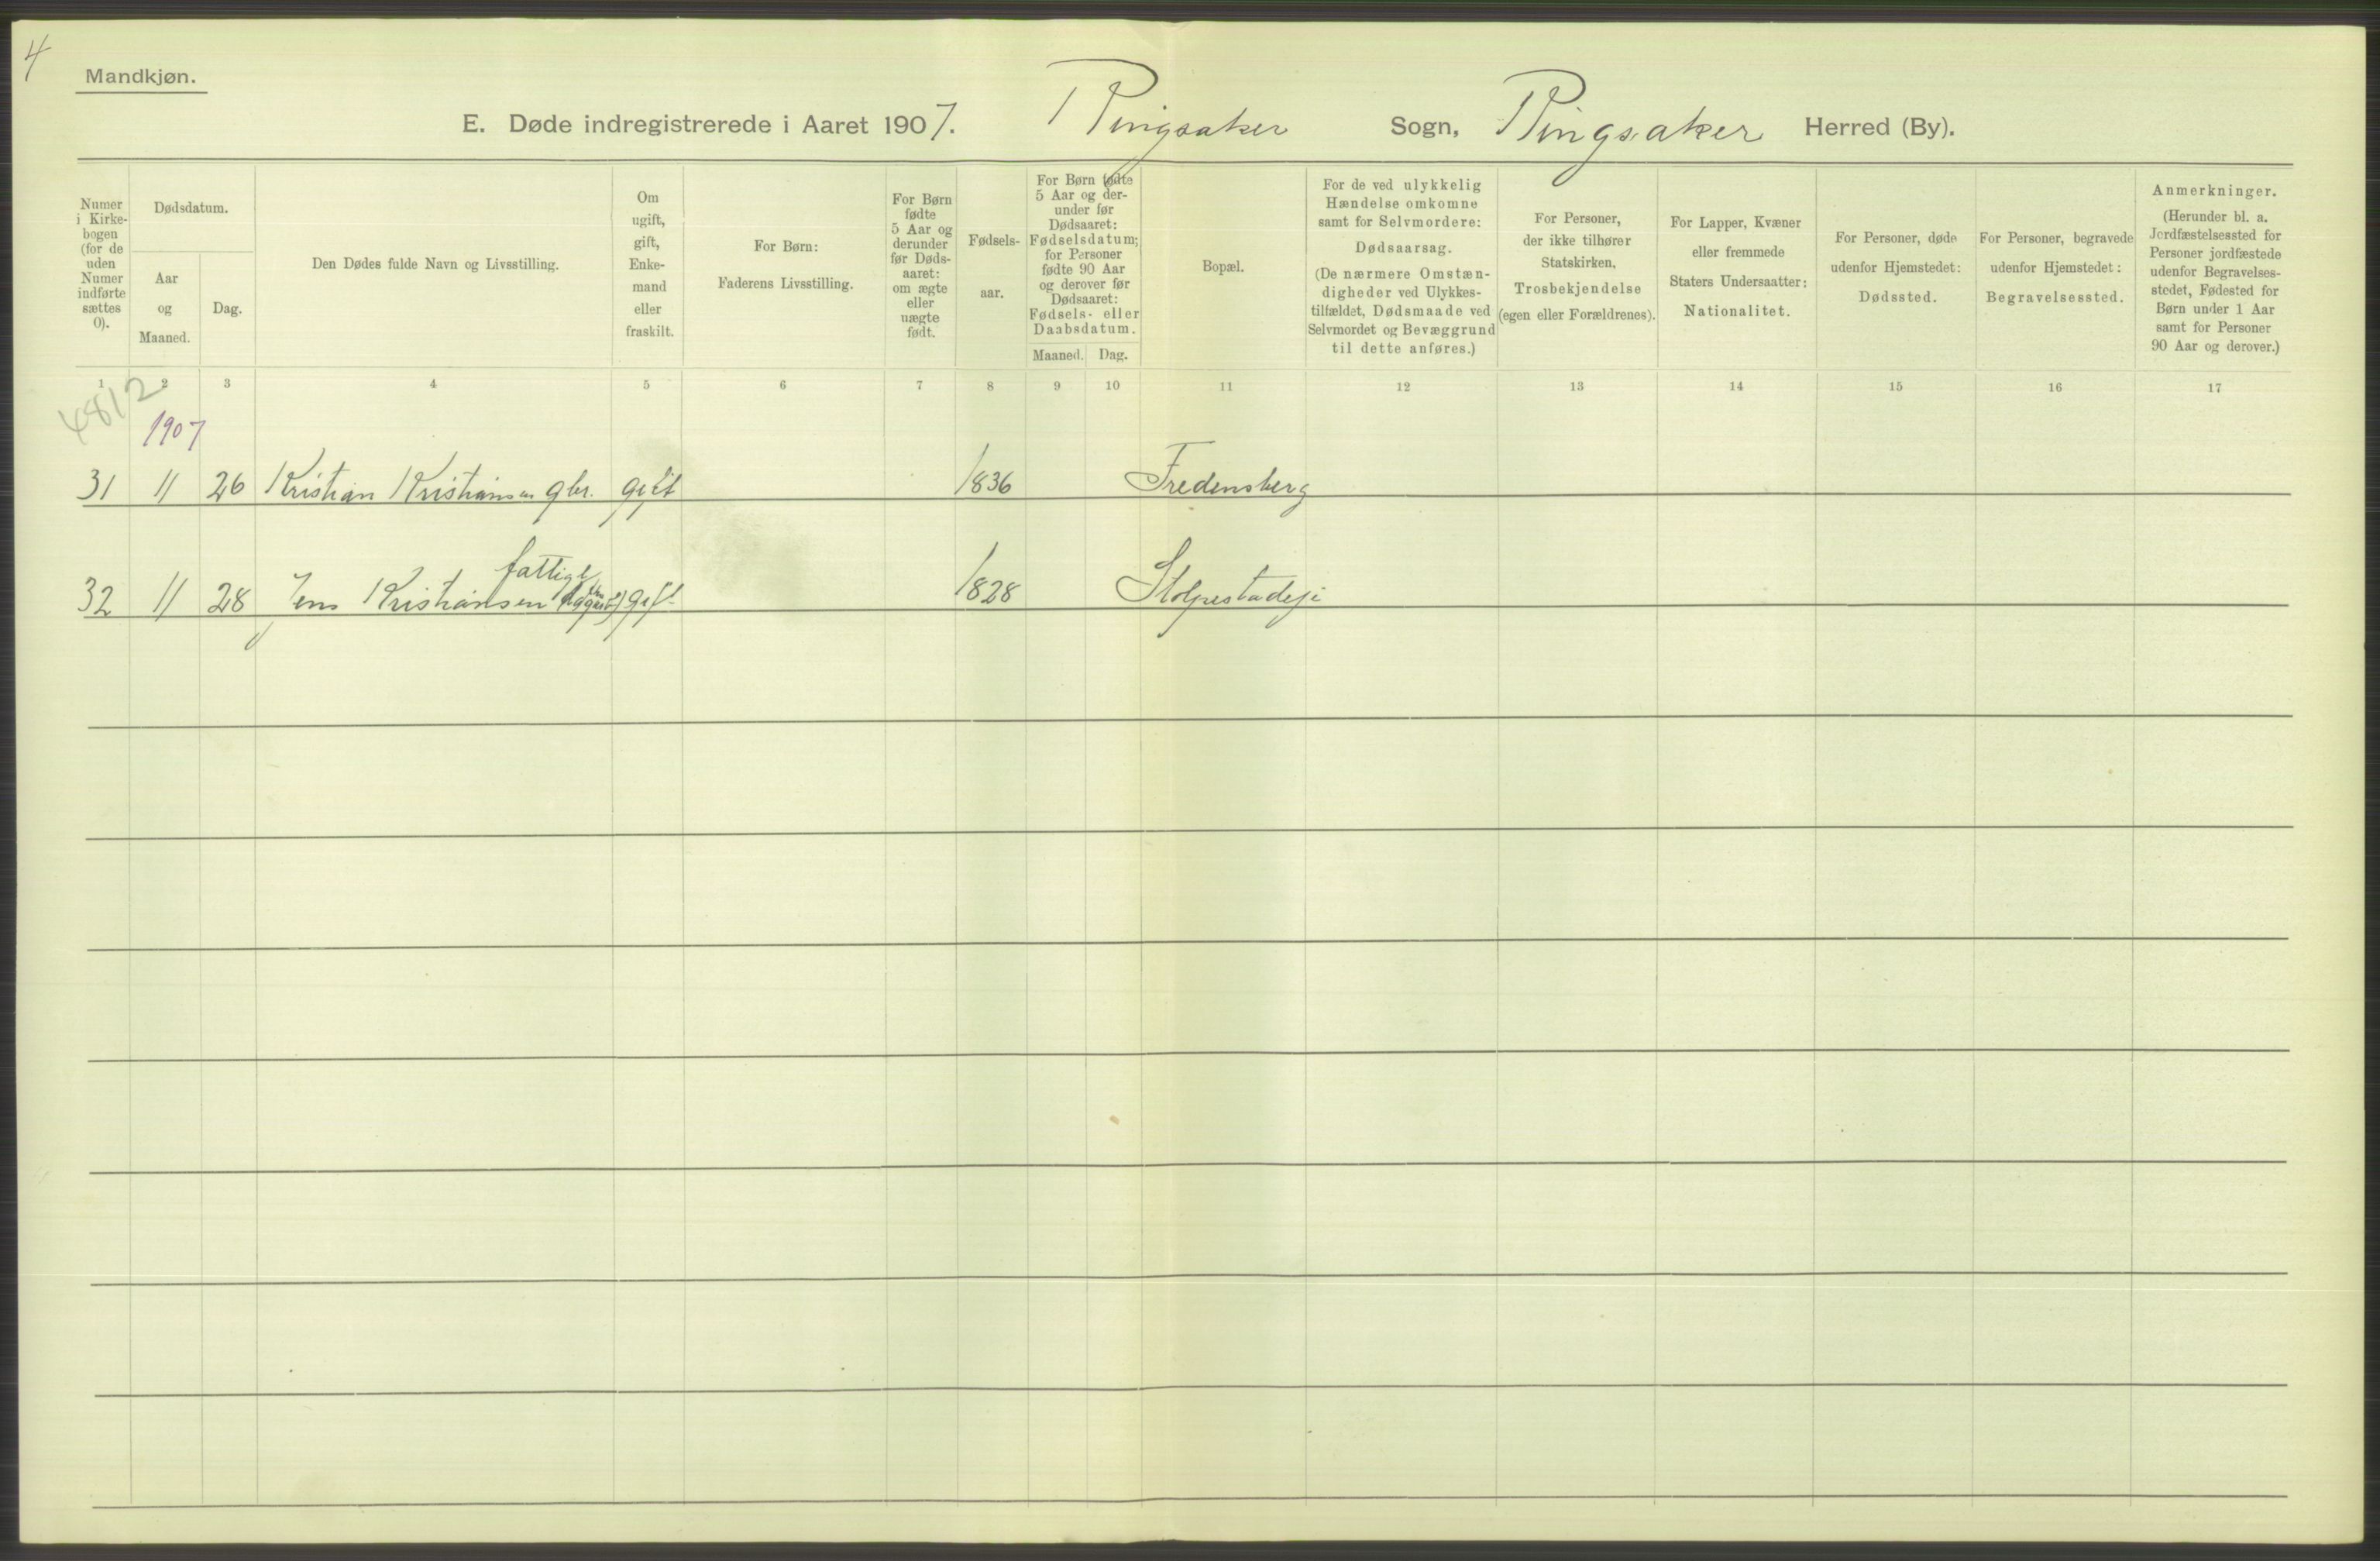 4
Mandkjøn.
E. Døde indregistrerede i Aaret 1907. Ringsaker Sogn, Ringsaker Herred (By).
Numer
i Kirke-
bogen
(for de
uden
Numer
indførte
sættes
0).
Dødsdatum.
Aar
og
Maaned.
Dag.
Den Dødes fulde Navn og Livsstilling.
Om
ugift,
gift,
Enke-
mand
eller
fraskilt.
For Børn:
Faderens Livsstilling.
For Børn
fødte
5 Aar og
derunder
før Døds-
aaret:
om ægte
eller
uægte
født.
Fødsels-
aar.
For Børn fødte
5 Aar og der-
under før
Dødsaaret:
Fødselsdatum;
for Personer
fødte 90 Aar
og derover før
Dødsaaret:
Fødsels- eller
Daabsdatum.
Maaned. Dag.
Bopæl.
For de ved ulykkelig
Hændelse omkomne
samt for Selvmordere:
Dødsaarsag.
(De nærmere Omstæn-
digheder ved Ulykkes-
tilfældet, Dødsmaade ved
Selvmordet og Bevæggrund
til dette anføres.)
For Personer,
der ikke tilhører
Statskirken,
Trosbekjendelse
(egen eller Forældrenes).
For Lapper, Kvæner
eller fremmede
Staters Undersaatter:
Nationalitet.
For Personer, døde
udenfor Hjemstedet:
Dødssted.
For Personer, begravede
udenfor Hjemstedet:
Begravelsessted.
Anmerkninger.
(Herunder bl. a.
Jordfæstelsessted for
Personer jordfæstede
udenfor Begravelses-
stedet, Fødested for
Børn under 1 Aar
samt for Personer
90 Aar og derover.)
1 2 3 4 5 6 7 8 9 10 11 12 13 14 15 16 17
4812
1907
31 11 26 Kristian Kristiansen gbr. gift 1836 Fredensberg
fattigl
32 11 28 Jens Kristiansen gift 1828 Stolpestadeje